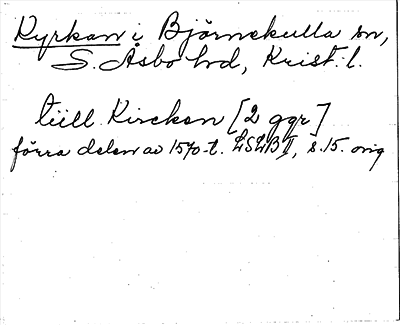 Kyrkan i Björnekulla sn,
S. Åsbo hd, Krist. l.
tiill Kircken [2 ggr]
förra delen av 1570-t. LSLB II, s. 15. orig